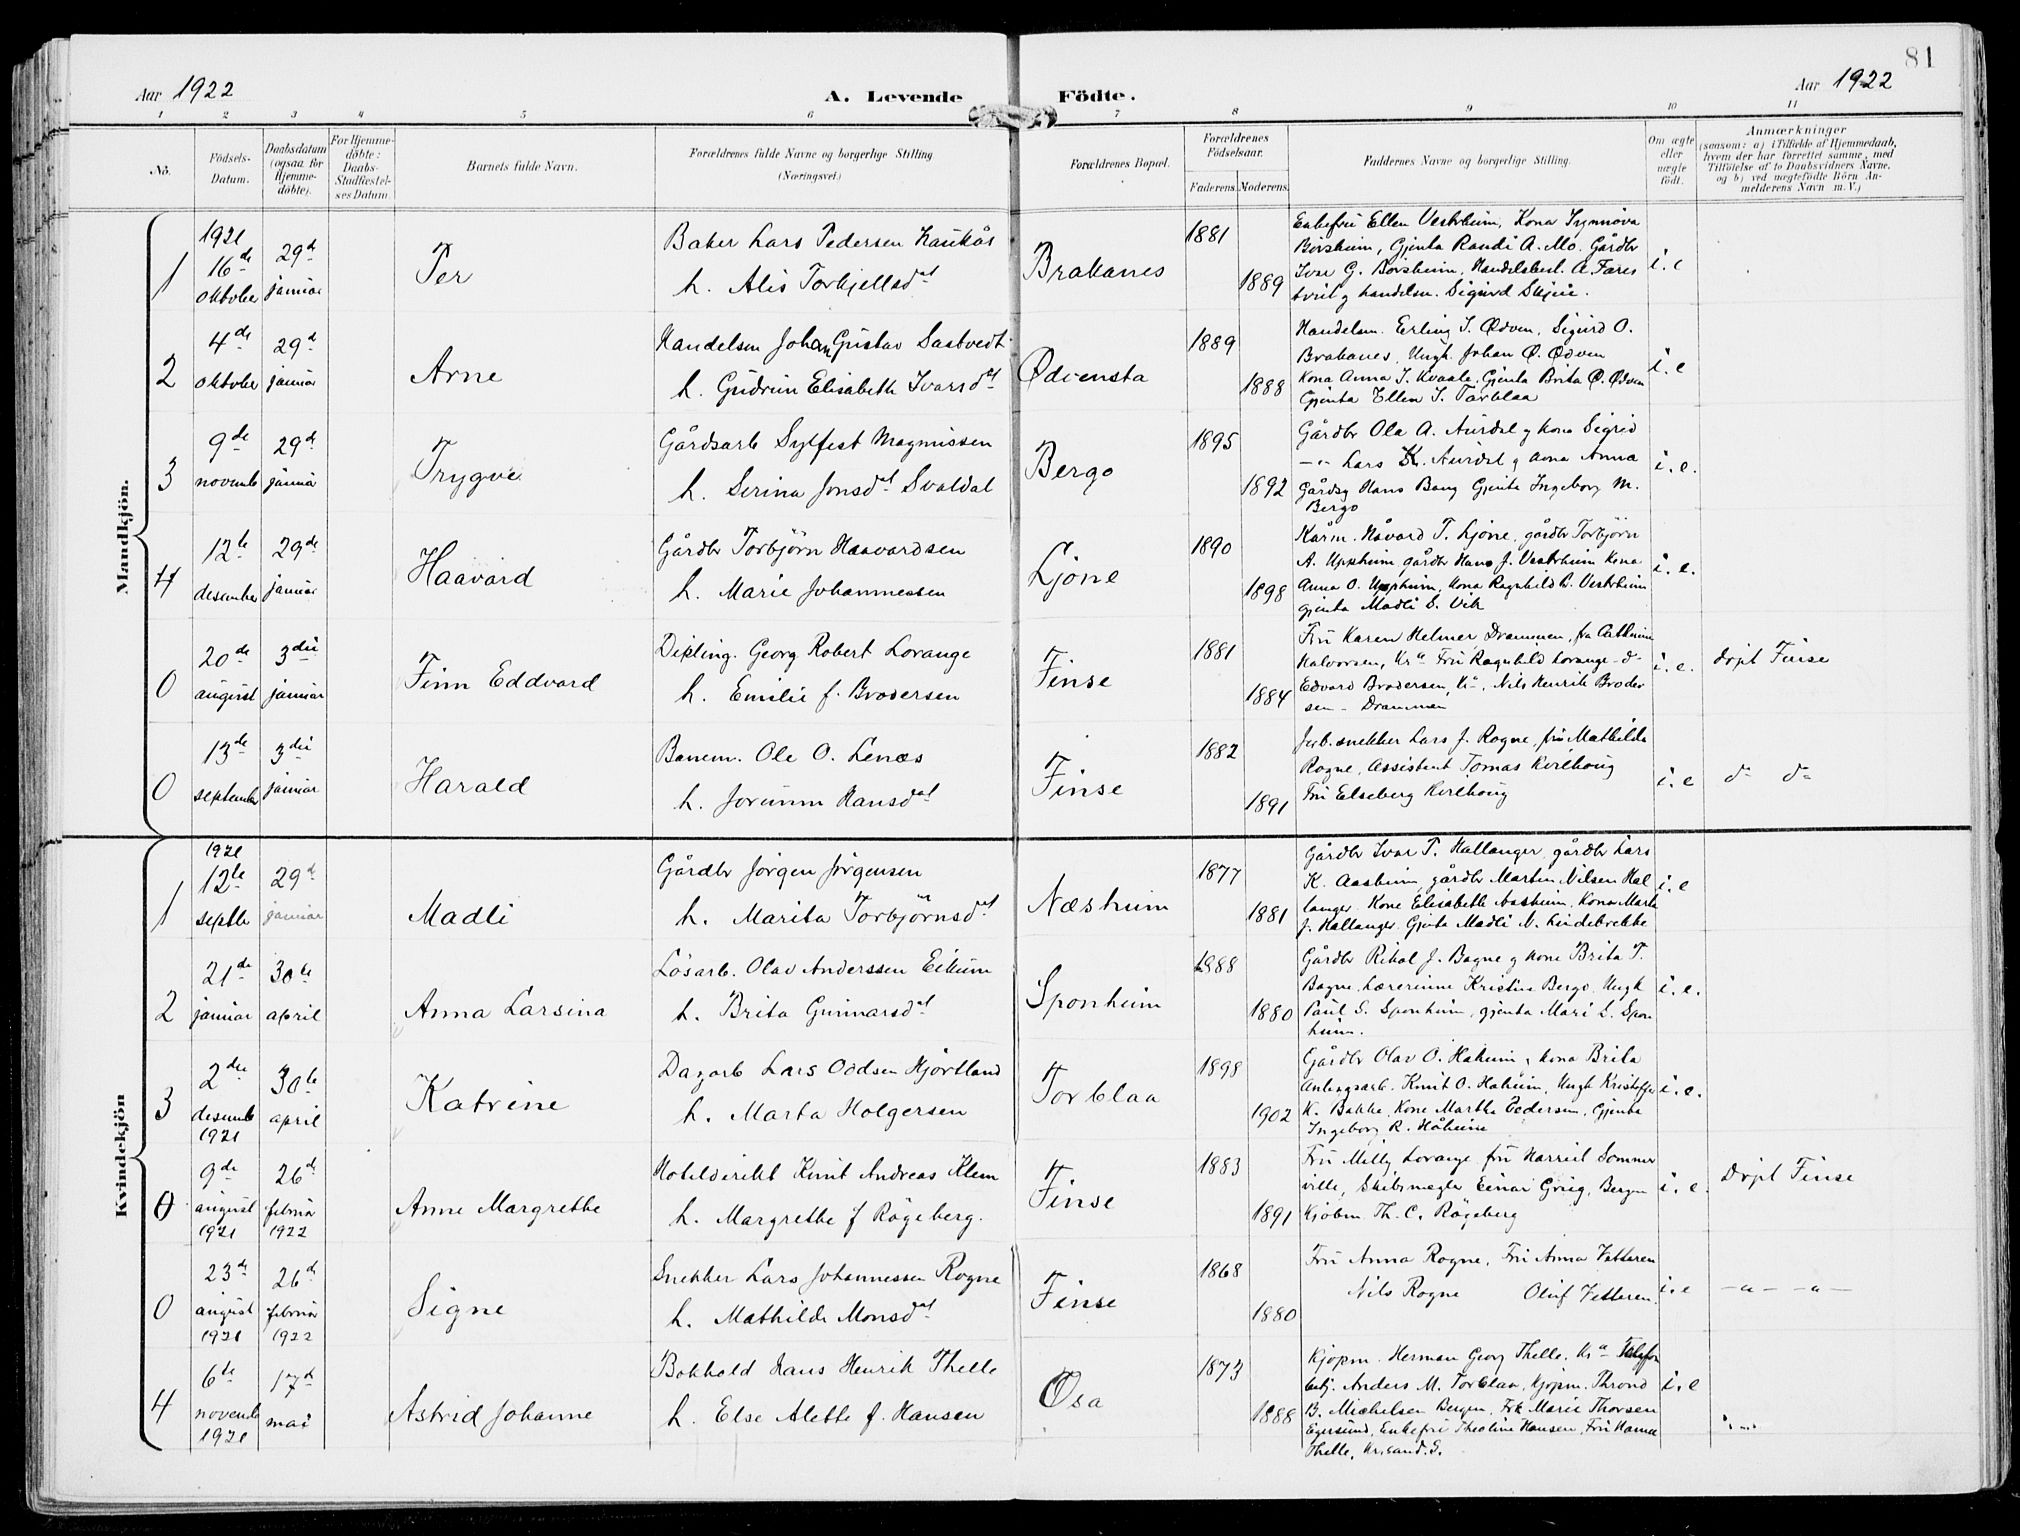 81
Aar 1922
A. Levende Födte.
Aar 1922
1 2 3 4 5 6 7 8 9 10 11
No.
Födsels-Datum.
Daabsdatum (ogsaa for Hjemme-döbte).
For Hjemme-döbte: Daabs-Stadfæstel-ses Datum.
Barnets fulde Navn.
Forældrenes fulde Navne og borgerlige Stilling
(Næringsvei.)
Forældrenes Bopæl.
Forældrenes Födselsaar.
Faderens. Moderens.
Faddernes Navne og borgerlige Stilling.
Om ægte eller uægte födt.
Anmærkninger
(saasom: a) i Tilfælde af Hjemmedaab, hvem der har forrettet samme, med Tilföielse af to Daabsvidners Navne, og b) ved uægtefödte Börn Anmelderens Navn m. V.)
Mandkjön.
1 1921 16de oktober 29de januar Per
Baker Lars Pedersen Haukås
h. Alis Torkjellsdat
Brakanes 1881 1889
Enkefru Ellen Vestrheim, Kona Synnøva
Børsheim, Gjenta Randi A. Mo, Gårdbr
Ivar G. Børsheim, Handelsbest. A. Færes
tveit og handelsm. Sigurd Skeie.
i. e
2 4de oktober 29de januar Arne
Handelsm Johan Gustav Saatvedt
h. Gudrun Elisabeth Ivarsdat
Ødvensta 1889 1888
Handelsm. Erling I. Ødven, Sigurd O.
Brakanes, Ungk. Johan O. Ødven
Kona Anna I. Kvaale, Gjenta Brita O. Ødven
Gjenta Ellen I. Torblaa
i. e
3 9de novembr 29de januar Trygve
Gårdsarb Sylfest Magnussen
h. Serina Jonsdat Svaldal
Bergo 1895 1892
Gårdbr Ola A. Aurdal g kona Sigrid
-"- Lars K. Aurdal g kona Anna
Gårdsg Hans Bang Gjenta Ingeborg M.
Bergo
i. e.
4 12te desember 29de januar Haavard
Gårdbr Torbjørn Haavardsen
h. Marie Johannessen
Ljøne 1890 1898
Kårm. Håvard T. Ljøne, gårdbr Torbjørn
A. Uppheim gårdbr Hans J. Vestrheim Kona
Anna O. Uppheim, Kona Ragnhild L. Vestrheim
gjenta Madli S. Vik
i. e.
0 20de august 3die januar Finn Eddvard
Georg Robert Lorange
h. Emilie f. Brodersen
Finse 1881 1884
Fru Karen Helmer Drammen, fru Cathrine
Halvorsen, Kra Fru Ragnhild Lorange -d-
Edvard Brodersen, Kra, Nils Henrik Broder
sen - Drammen
i. e. Døpt Finse
0 13de september 3die januar Harald
Banem. Ole O. Lenæs
h. Jorunn Hansdat
Finse 1882 1891
Jrb.snekker Lars J. Rogne, fru Mathilde
Rogne, Assistent Tomas Kvilhoug
Fru Elseberg Kvilhoug
i. e do do
Kvindekjön
1 1921 12te septbr 29de januar Madli
Gårdbr Jørgen Jørgensen
h. Marita Torbjørnsdat
Næsheim 1877 1881
Gårdbr Ivar T. Hallanger gårdbr Lars
K. Aasheim, gårdbr Martin Nilsen Hal
langer. Kone Elisabeth Aasheim, Kona Marta
J. Hallanger. Gjenta Madli N. Lindebrekke
i. e
2 21de januar 30te april Anna Larsina
Løsarb. Olav Anderssen Eikum
h. Brita Gunnarsdat
Sponheim 1888 1880
Gårdbr Rikol J. Bagne g kone Brita T.
Bagne, Lærerinne Kristina Bergo, Ungk
Paul S. Sponheim, gjenta Mari L. Spon
heim.
i. e.
3 2den desembr 1921 30te april Katrine
Dagarb Lars Oddsen Hjørtland
h. Marta Holgersen
Torblaa 1898 1902
Gårdbr Olav O. Håheim g kona Brita
Anlegsarb. Knut O. Håheim, Ungk Kristoffer
K. Bakke, Kone Martha Pedersen, Gjenta
Ingeborg R. Håheim
i. e.
0 9de august 1921 26de februar 1922 Anne Margrethe
Hoteldirekt Knut Andreas Klem
h. Margrethe f Røgeberg.
Finse 1883 1891
Fru Milly Lorange fru Harriet Sommer
ville, Skibsmegler Einar Grieg, Bergen
Kjøbm. Th. C. Røgeberg
i. e. Døpt Finse
0 23de august 1921 26de februar 1922 Signe
Snekker Lars Johannessen Rogne
h. Mathilde Monsdat
Finse 1868 1880
Fru Anna Rogne, Fru Anna Vetteren
Nils Rogne Oluf Vetteren.
i. e -"- -"-
4 6te novembr 1921 17de mai Astrid Johanne
Bokhold Hans Henrik Thelle
h. Else Alette f. Hansen
Osa 1873 1888
Kjøpm. Herman Georg Thelle, Kra Telefon
betj. Anders M. Torblaa, kjøpm. Thrond
B. Michelsen Bergen, Frk Marie Thorsen
Egersund, Enkefru Theoline Hansen, Fru Hanna
Thelle, Kr.sand. S.
i. e